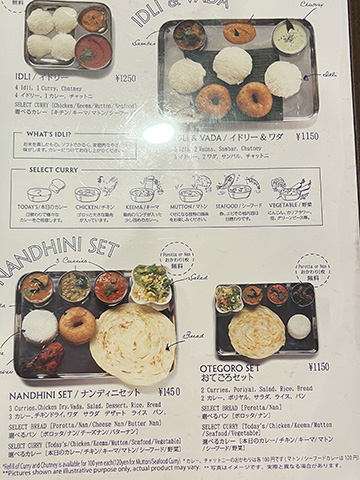 IDLI & VADA
Chutney
Sambar
Idli
無料
IDLI / イドリー ¥1250
4 Idli, 1 Curry, Chutney
4 イドリー, 1 カレー, チャットニ
SELECT CURRY (Chicken/Keema/Mutton/Seafood)
選べるカレー [チキン/キーマ/マトン/シーフード]
IDLI & VADA / イドリー & ワダ ¥1150
3 Idli, 2 Wadas, Sambar, Chutney
3 イドリー, 2 ワダ, サンバル, チャットニ
WHAT'S IDLI?
SELECT CURRY
TODAY'S / 本日のカレー
CHICKEN / チキン
KEEMA / キーマ
MUTTON / マトン
SEAFOOD / シーフード
VEGETABLE / 野菜
NANDHINI SET
3 Curries
Salad
Bread
(Porotta or Nan)
おかわり1枚
無料
(Porotta or Nan)
おかわり1枚
無料
NANDHINI SET / ナンディニセット ¥1450
2 Curries, Chicken Dry, Vada, Salad, Dessert, Rice, Bread
3 カレー, チキンドライ, ワダ サラダ デザート ライス, パン,
SELECT BREAD [Porotta/Nan/Cheese Nan/Butter Nan]
選べるパン [ポロッタ/ナン/チーズナン/バターナン]
SELECT CURRY [Today's/Chicken/Keema/Mutton
/Seafood/Vegetable]
選べるカレー [本日のカレー/チキン/キーマ/マトン
/シーフード/野菜]
OTEGORO SET ¥1150
おてごろセット
2 Curries, Poriyal, Salad, Rice, Bread
2 カレー, ポリヤル, サラダ, ライス, パン
SELECT BREAD [Porotta/Nan]
選べるパン [ポロッタ/ナン]
SELECT CURRY (Today's/Chicken/Keema/Mutton
/Seafood/Vegetable)
選べるカレー [本日のカレー/チキン/キーマ/マトン
/シーフード/野菜]
*Refill of Curry and Chutney is available for 100 yen each(120yen for Mutton/Seafood Curry) *カレー、チャットニーのおかわりは各100円です(マトン/シーフードカレーは120円)
**Pictures shown are illustrative purpose only, actual product may vary. **写真はイメージです。実際と異なる場合があります。